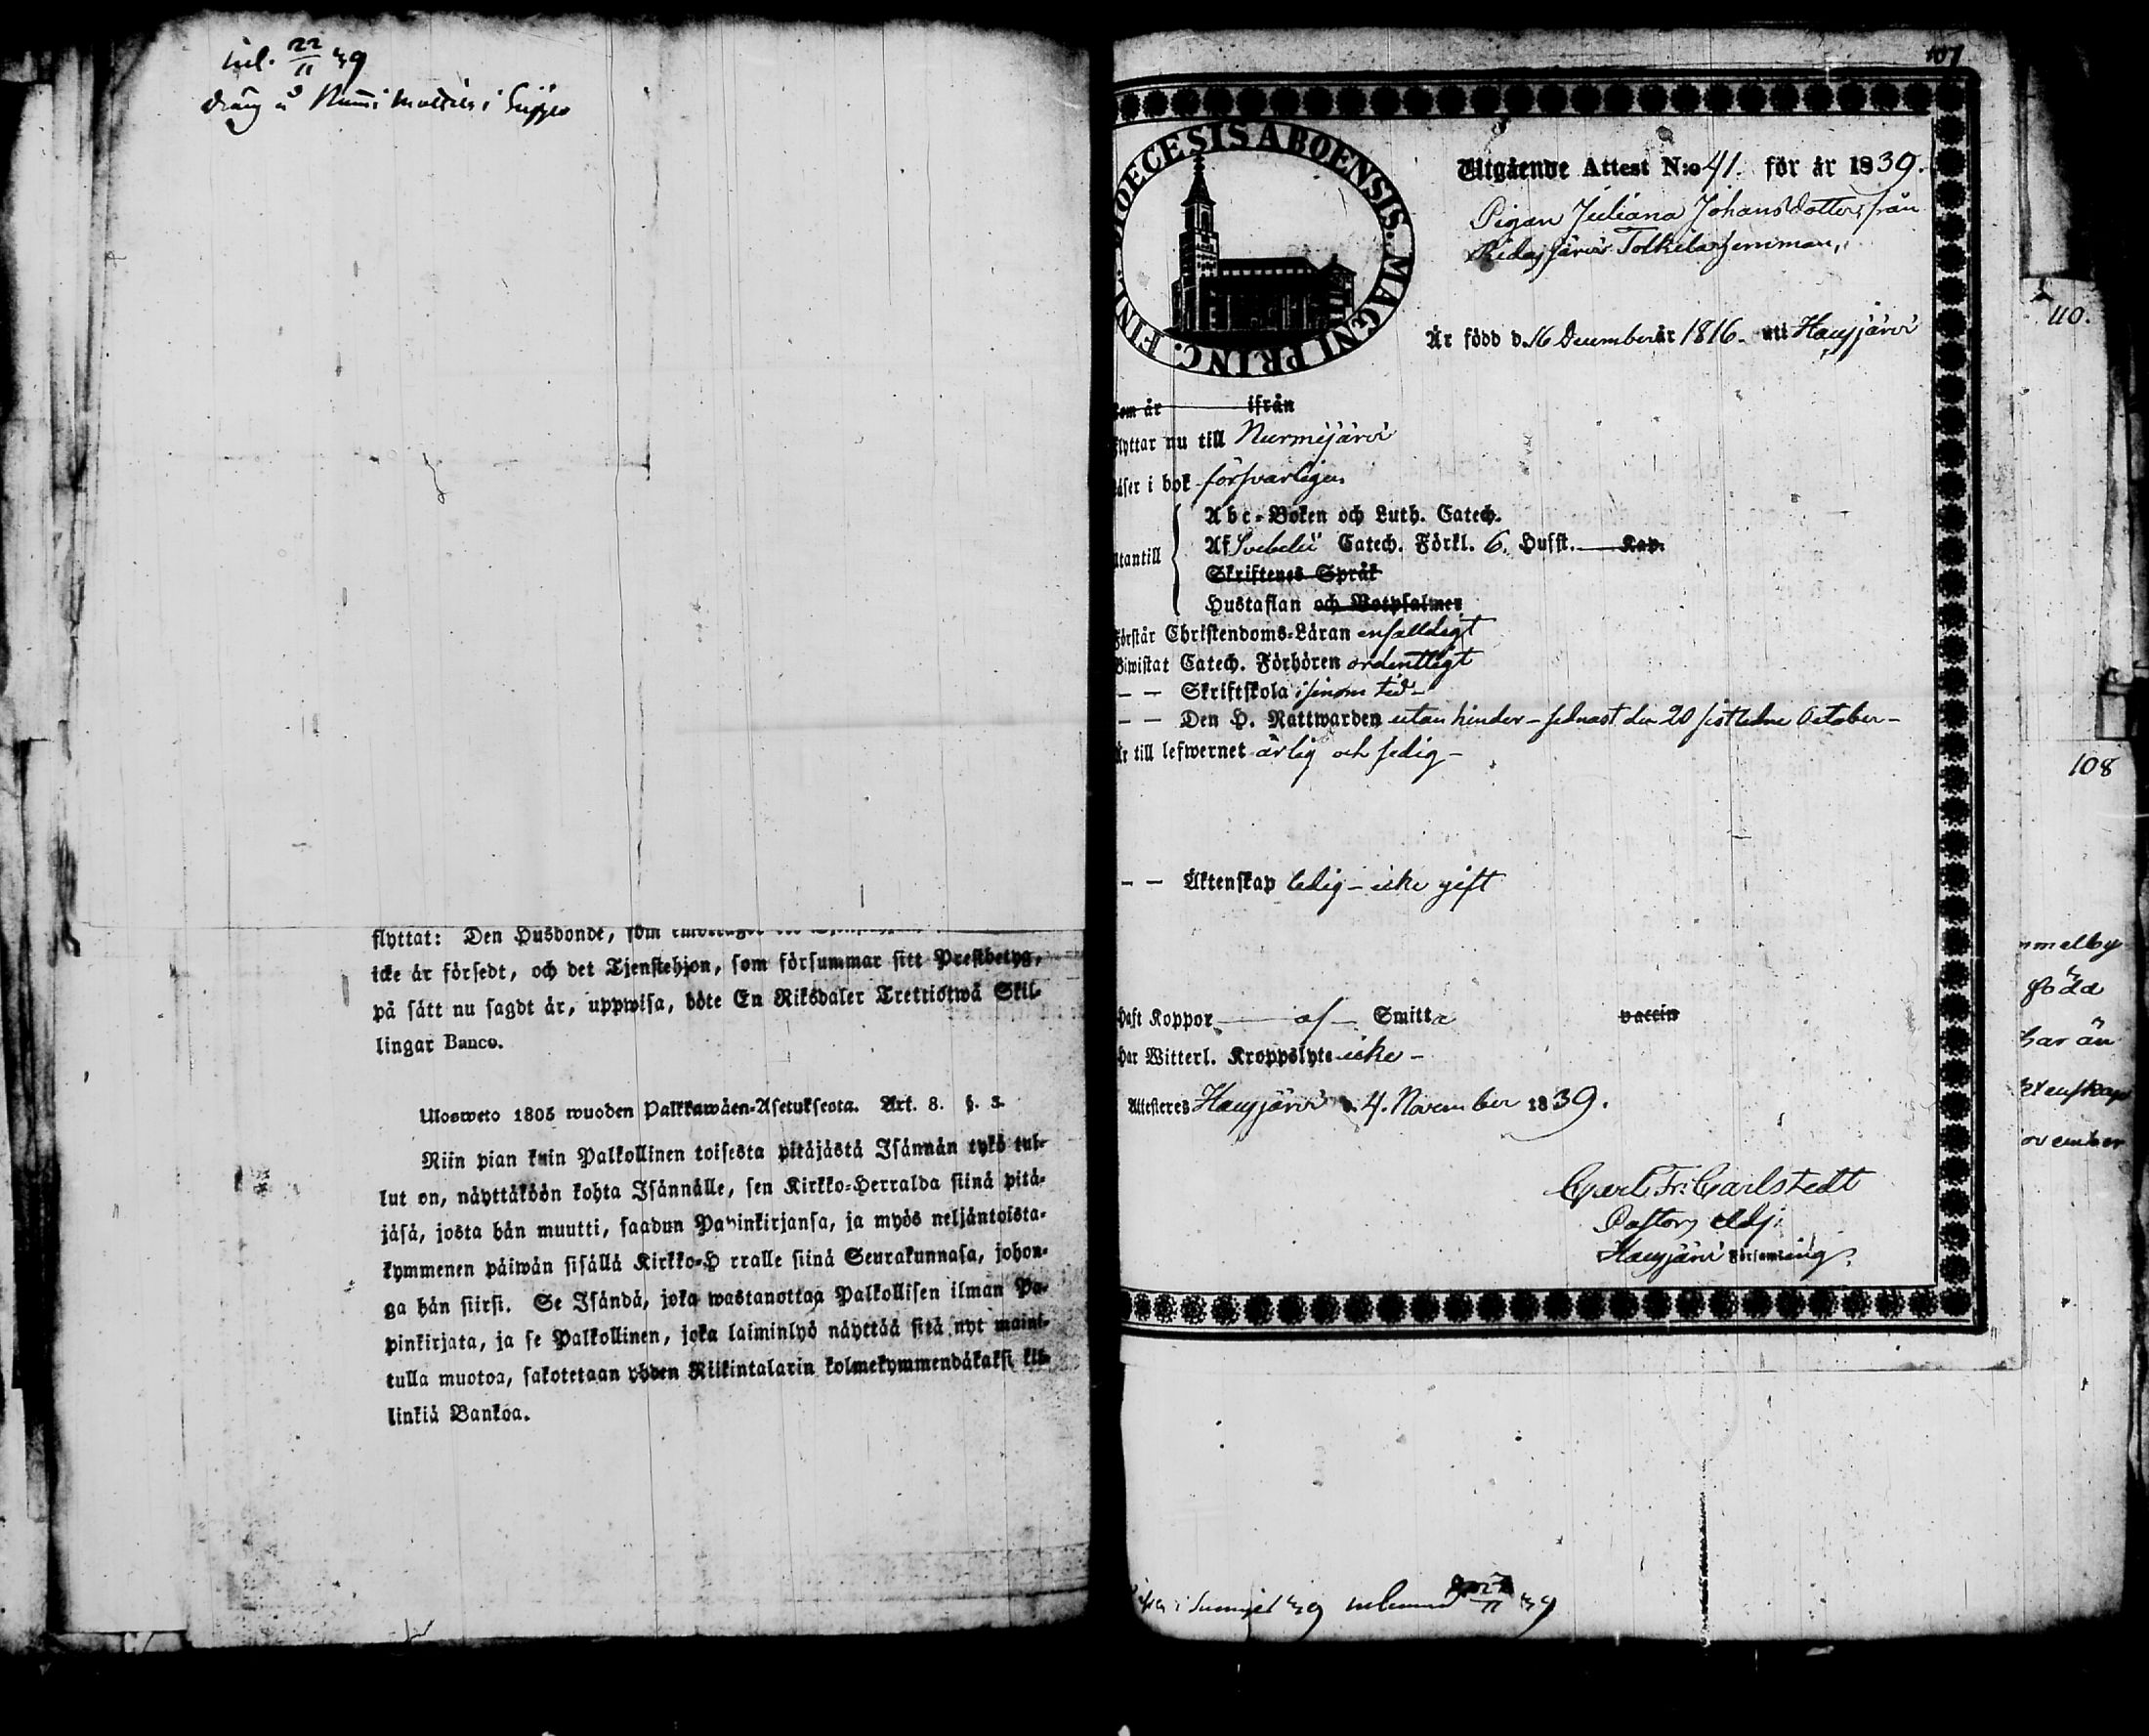 inl. 22/11 39
dräng å Nummi Mattila i
flyttat: Den Husbonde, som
icke är försedt, och det Tjenstehjon, som försummar sitt Prestbetyg,
på sätt nu sagdt är, uppwisa, böte En Riksdaler Trettiotwå Skil-
lingar Banco.
Ulosweto 1805 wuoden Palkkawäen-Asetuksesta. Art. 8. §. 3.
Niin pian kuin Palkollinen toisesta pitäjästä Isännän tykö tul-
lut on, näyttäköön kohta Isännälle, sen Kirkko-Herralda siinä pitä-
jäsä, josta hän muutti, saadun Papinkirjansa, ja myös neljäntoista-
kymmenen päiwän sisällä Kirkko-H rralle siinä Seurakunnasa, johon-
ga hän siirsi. Se Isändä, joka wastanottaa Palkollisen ilman Pa-
pinkirjata, ja se Palkollinen, joka laiminlyö näyttää sitä nyt maini-
tulla muotoa, sakotetaan yhden Riikintalarin kolmekymmendäkaksi kil-
linkiä Bankoa.
107
DIOECESIS ABOENSIS. MAGNI PRINC. FINL.
Utgående Attest N:o 41. för år 1839.
Pigan Juliana Johansdotter, från
Ridasjärvi Tolkila hemman,
Är född d. 16 December år 1816. uti Hausjärvi
Kom år ifrån
Flyttar nu till Nurmijärvi
Läser i bok försvarligen
Abc-Boken och Luth. Catech.
Utantill
Af Svebelii Catech. Förkl. 6. Hufst. Kap.
Skriftenes Språk
Hustaflan och Botpsalmer
Förstår Christendoms-Läran enfaldigt
Biwistat Catech. Förhören ordentligt
— — Skriftskola i sinom tid —
— — Den H. Nattwarden utan hinder — sednast den 20 sistledne October —
Är till lefwernet ärlig och sedig —
— — Äktenskap ledig — icke gift
Haft Koppor — af — Smitta vaccin
Har Witterl. Kroppslyte icke —
Attesteres Hausjärvi d. 4. November 1839.
Carl Fr: Carlstedt
Pastors Adj:
Hausjärvi Församling.
22/11 39
110.
108
mmelby
född
har än
ktenskap
ovember